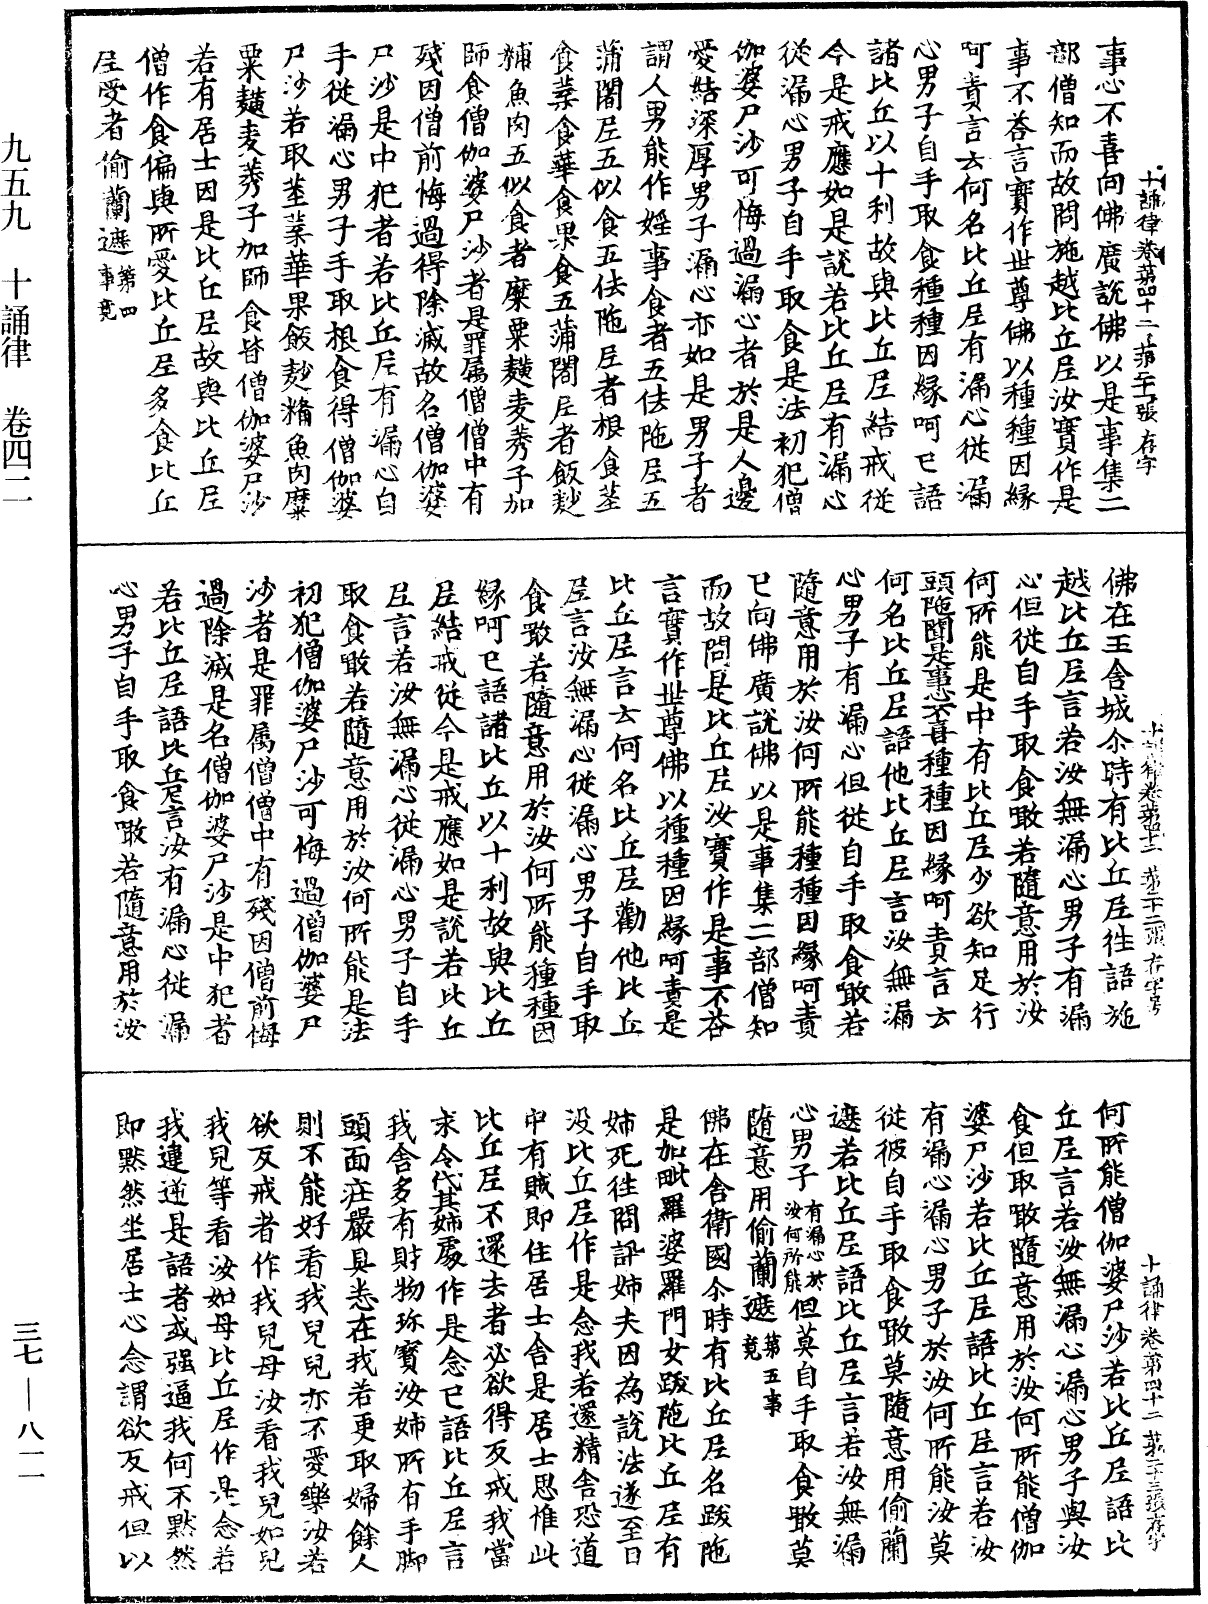 十誦律卷第四十二 第二十一張 存字
事心不喜向佛廣說佛以是事集二
部僧知而故問施越比丘尼汝實作是
事不荅言實作世尊佛以種種因緣
呵責言云何名比丘尼有漏心從漏
心男子自手取食種種因緣呵已語
諸比丘以十利故與比丘尼結戒從
今是戒應如是說若比丘尼有漏心
從漏心男子自手取食是法初犯僧
伽婆尸沙可悔過漏心者於是人邊
愛結深厚男子漏心亦如是男子者
謂人男能作婬事食者五佉陁尼五
蒲闍尼五似食五佉陁尼者根食莖
食葉食華食果食五蒲闍尼者飯麨
糒魚肉五似食者糜粟䵃麦莠子加
師食僧伽婆尸沙者是罪属僧僧中有
殘因僧前悔過得除滅故名僧伽婆
尸沙是中犯者若比丘尼有漏心自
手從漏心男子手取根食得僧伽婆
尸沙若取莖葉華果飯麨糒魚肉糜
粟䵃麦莠子加師食皆僧伽婆尸沙
若有居士因是比丘尼故與比丘尼
僧作食偏與所愛比丘尼多食比丘
尼受者偷蘭遮第四事竟
十誦律卷第四十二 第二十二張 存字号
佛在王舍城尒時有比丘尼徃語施
越比丘尼言若汝無漏心男子有漏
心但從自手取食噉若隨意用於汝
何所能是中有比丘尼少欲知足行
頭陁聞是事心不喜種種因緣呵責言云
何名比丘尼語他比丘尼言汝無漏
心男子有漏心但從自手取食噉若
隨意用於汝何所能種種因緣呵責
已向佛廣說佛以是事集二部僧知
而故問是比丘尼汝實作是事不荅
言實作世尊佛以種種因緣呵責是
比丘尼言云何名比丘尼勸他比丘
尼言汝無漏心從漏心男子自手取
食噉若隨意用於汝何所能種種因
緣呵已語諸比丘以十利故與比丘
尼結戒從今是戒應如是說若比丘
尼言若汝無漏心從漏心男子自手
取食噉若隨意用於汝何所能是法
初犯僧伽婆尸沙可悔過僧伽婆尸
沙者是罪属僧僧中有殘因僧前悔
過除滅是名僧伽婆尸沙是中犯者
若比丘尼語比丘尼言汝有漏心從漏
心男子自手取食噉若隨意用於汝
十誦律卷第四十二 第二十三張 存字
何所能僧伽婆尸沙若比丘尼語比
丘尼言若汝無漏心漏心男子與汝
食但取噉隨意用於汝何所能僧伽
婆尸沙若比丘尼語比丘尼言若汝
有漏心漏心男子於汝何所能汝莫
從彼自手取食噉莫隨意用偷蘭
遮若比丘尼語比丘尼言若汝無漏
心男子有漏心於汝何所能但莫自手取食噉莫
隨意用偷蘭遮第五事竟
佛在舍衛國尒時有比丘尼名跋陁
是加毗羅婆羅門女跋陁比丘尼有
姊死徃問訊姊夫因為說法遂至日
没比丘尼作是念我若還精舍恐道
中有賊即住居士舍是居士思惟此
比丘尼不還去者必欲得反戒我當
求令代其姊處作是念已語比丘尼言
我舍多有財物珎寶汝姊所有手脚
頭面莊嚴具悉在我若更取婦餘人
則不能好看我兒兒亦不愛樂汝若
欲反戒者作我兒母汝看我兒如兒
我兒等看汝如母比丘尼作是念若
我違逆是語者或强逼我何不黙然
即黙然坐居士心念謂欲反戒但以
九五九 十誦律 卷四二
三七—八一一